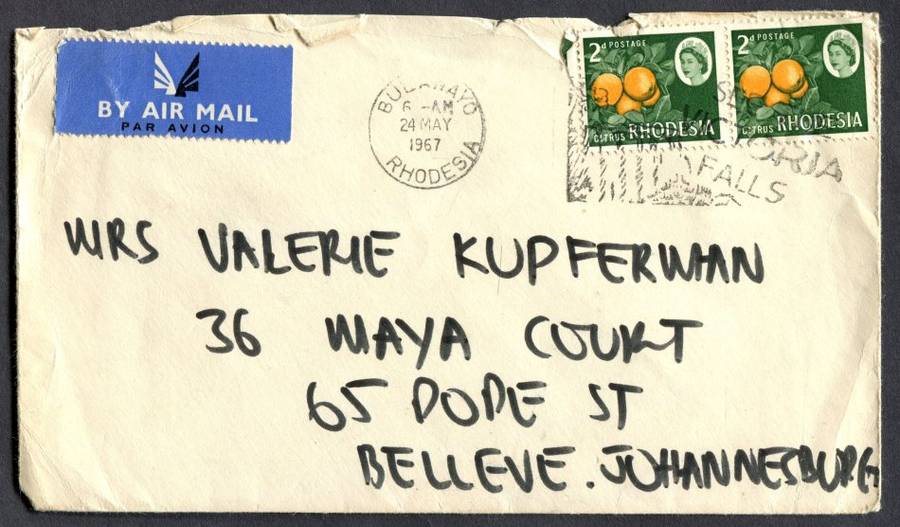 BY AIR MAIL
PAR AVION
BULAWAYO
6 -AM
24 MAY
1967
RHODESIA
2d POSTAGE
CITRUS RHODESIA
2d POSTAGE
CITRUS RHODESIA
VICTORIA
FALLS
MRS VALERIE KUPFERMAN
36 MAYA COURT
65 POPE ST
BELLEVE. JOHANNESBURG